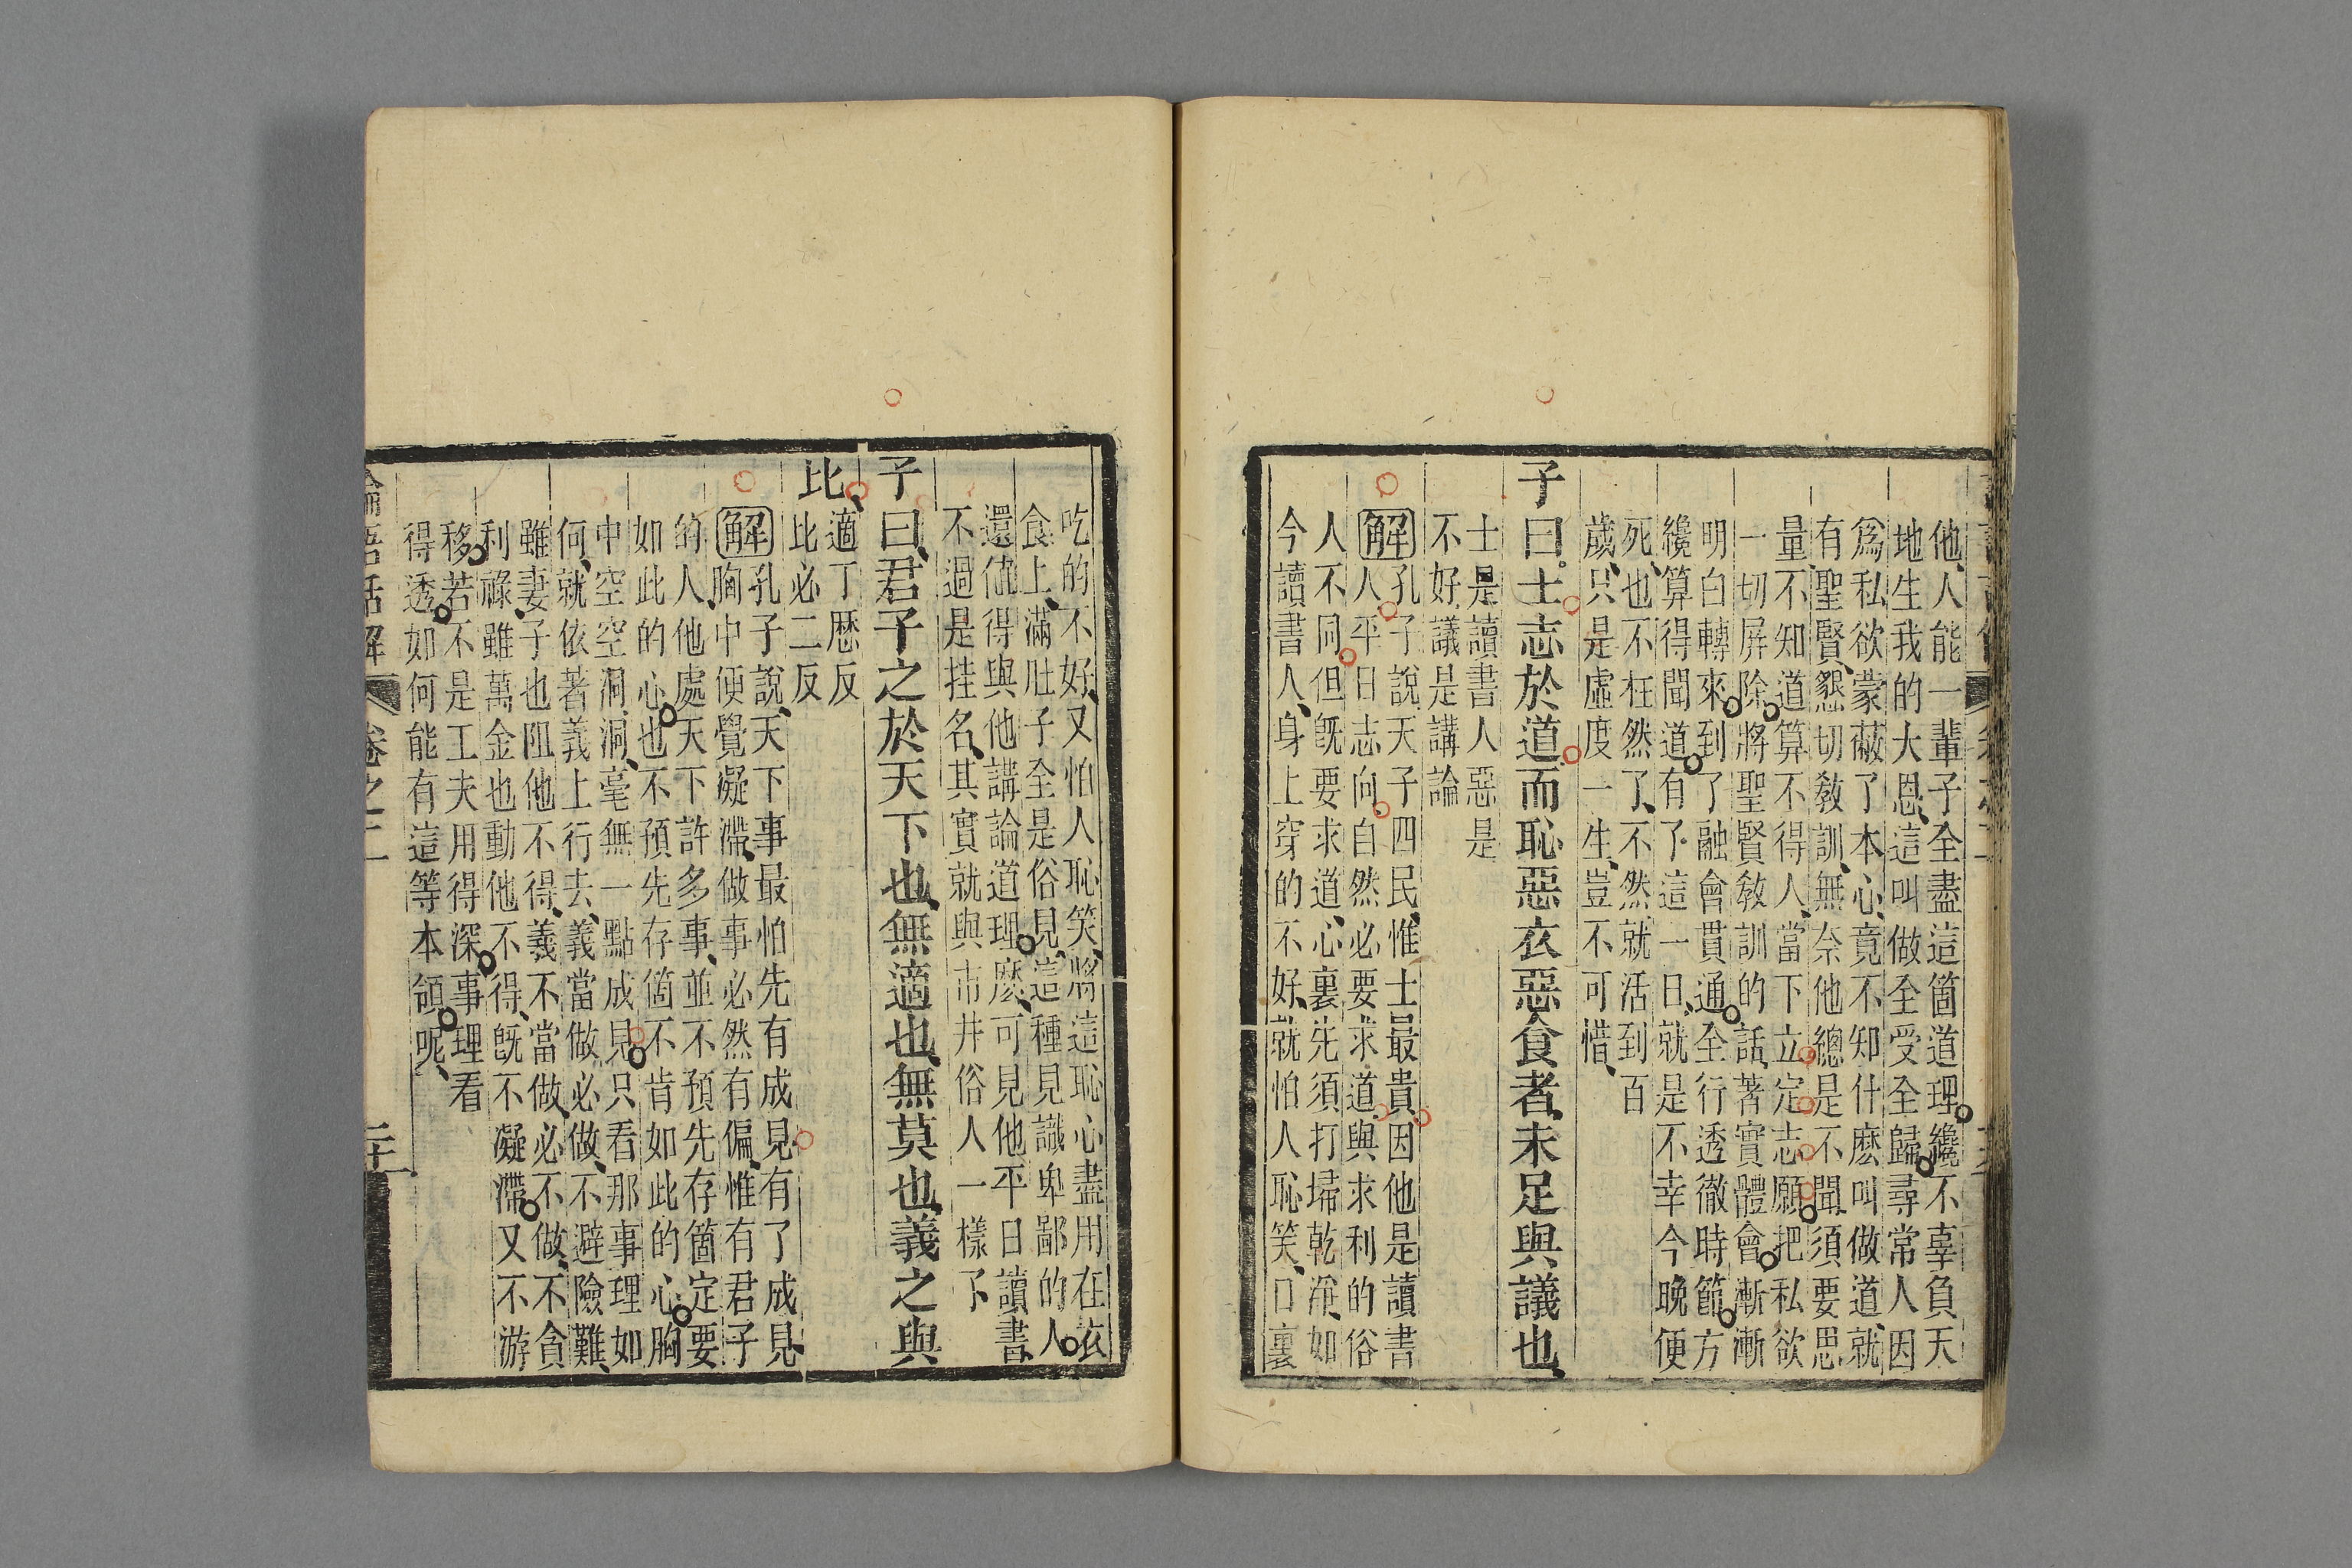 他人能一輩子全盡這箇道理纔不辜負天
地生我的大恩這叫做全受全歸尋常人因
爲私欲蒙蔽了本心竟不知什麽叫做道就
有聖賢懇切敎訓無奈他總是不聞須要思
量不知道算不得人當下立定志願把私欲
一切屏除將聖賢敎訓的話著實體會漸漸
明白轉來到了融會貫通全行透徹時節方
纔算得聞道有了這一日就是不幸今晚便
死也不枉然了不然就活到百
歲只是虛度一生豈不可惜
子曰士志於道而恥惡衣惡食者未足與議也
士是讀書人惡是
不好議是講論
解孔子說天子四民惟士最貴因他是讀書
人平日志向自然必要求道與求利的俗
人不同但旣要求道心裏先須打埽乾淨如
今讀書人身上穿的不好就怕人恥笑口裏
吃的不好又怕人恥笑將這恥心盡用在衣
食上滿肚子全是俗見這種見識卑鄙的人
還値得與他講論道理麽可見他平日讀書
不過是挂名其實就與市井俗人一樣了
子曰君子之於天下也無適也無莫也義之與
比
適丁歷反
比必二反
解孔子說天下事最怕先有成見有了成見
胸中便覺凝滯做事必然有偏惟有君子
的人他處天下許多事並不預先存箇定要
如此的心也不預先存箇不肯如此的心胸
中空空洞洞毫無一點成見只看那事理如
何就依著義上行去義當做必做不避險難
雖妻子也阻他不得義不當做必不做不貪
利祿雖萬金也動他不得旣不凝滯又不游
移若不是工夫用得深事理看
得透如何能有這等本領呢
論語話解
卷之二